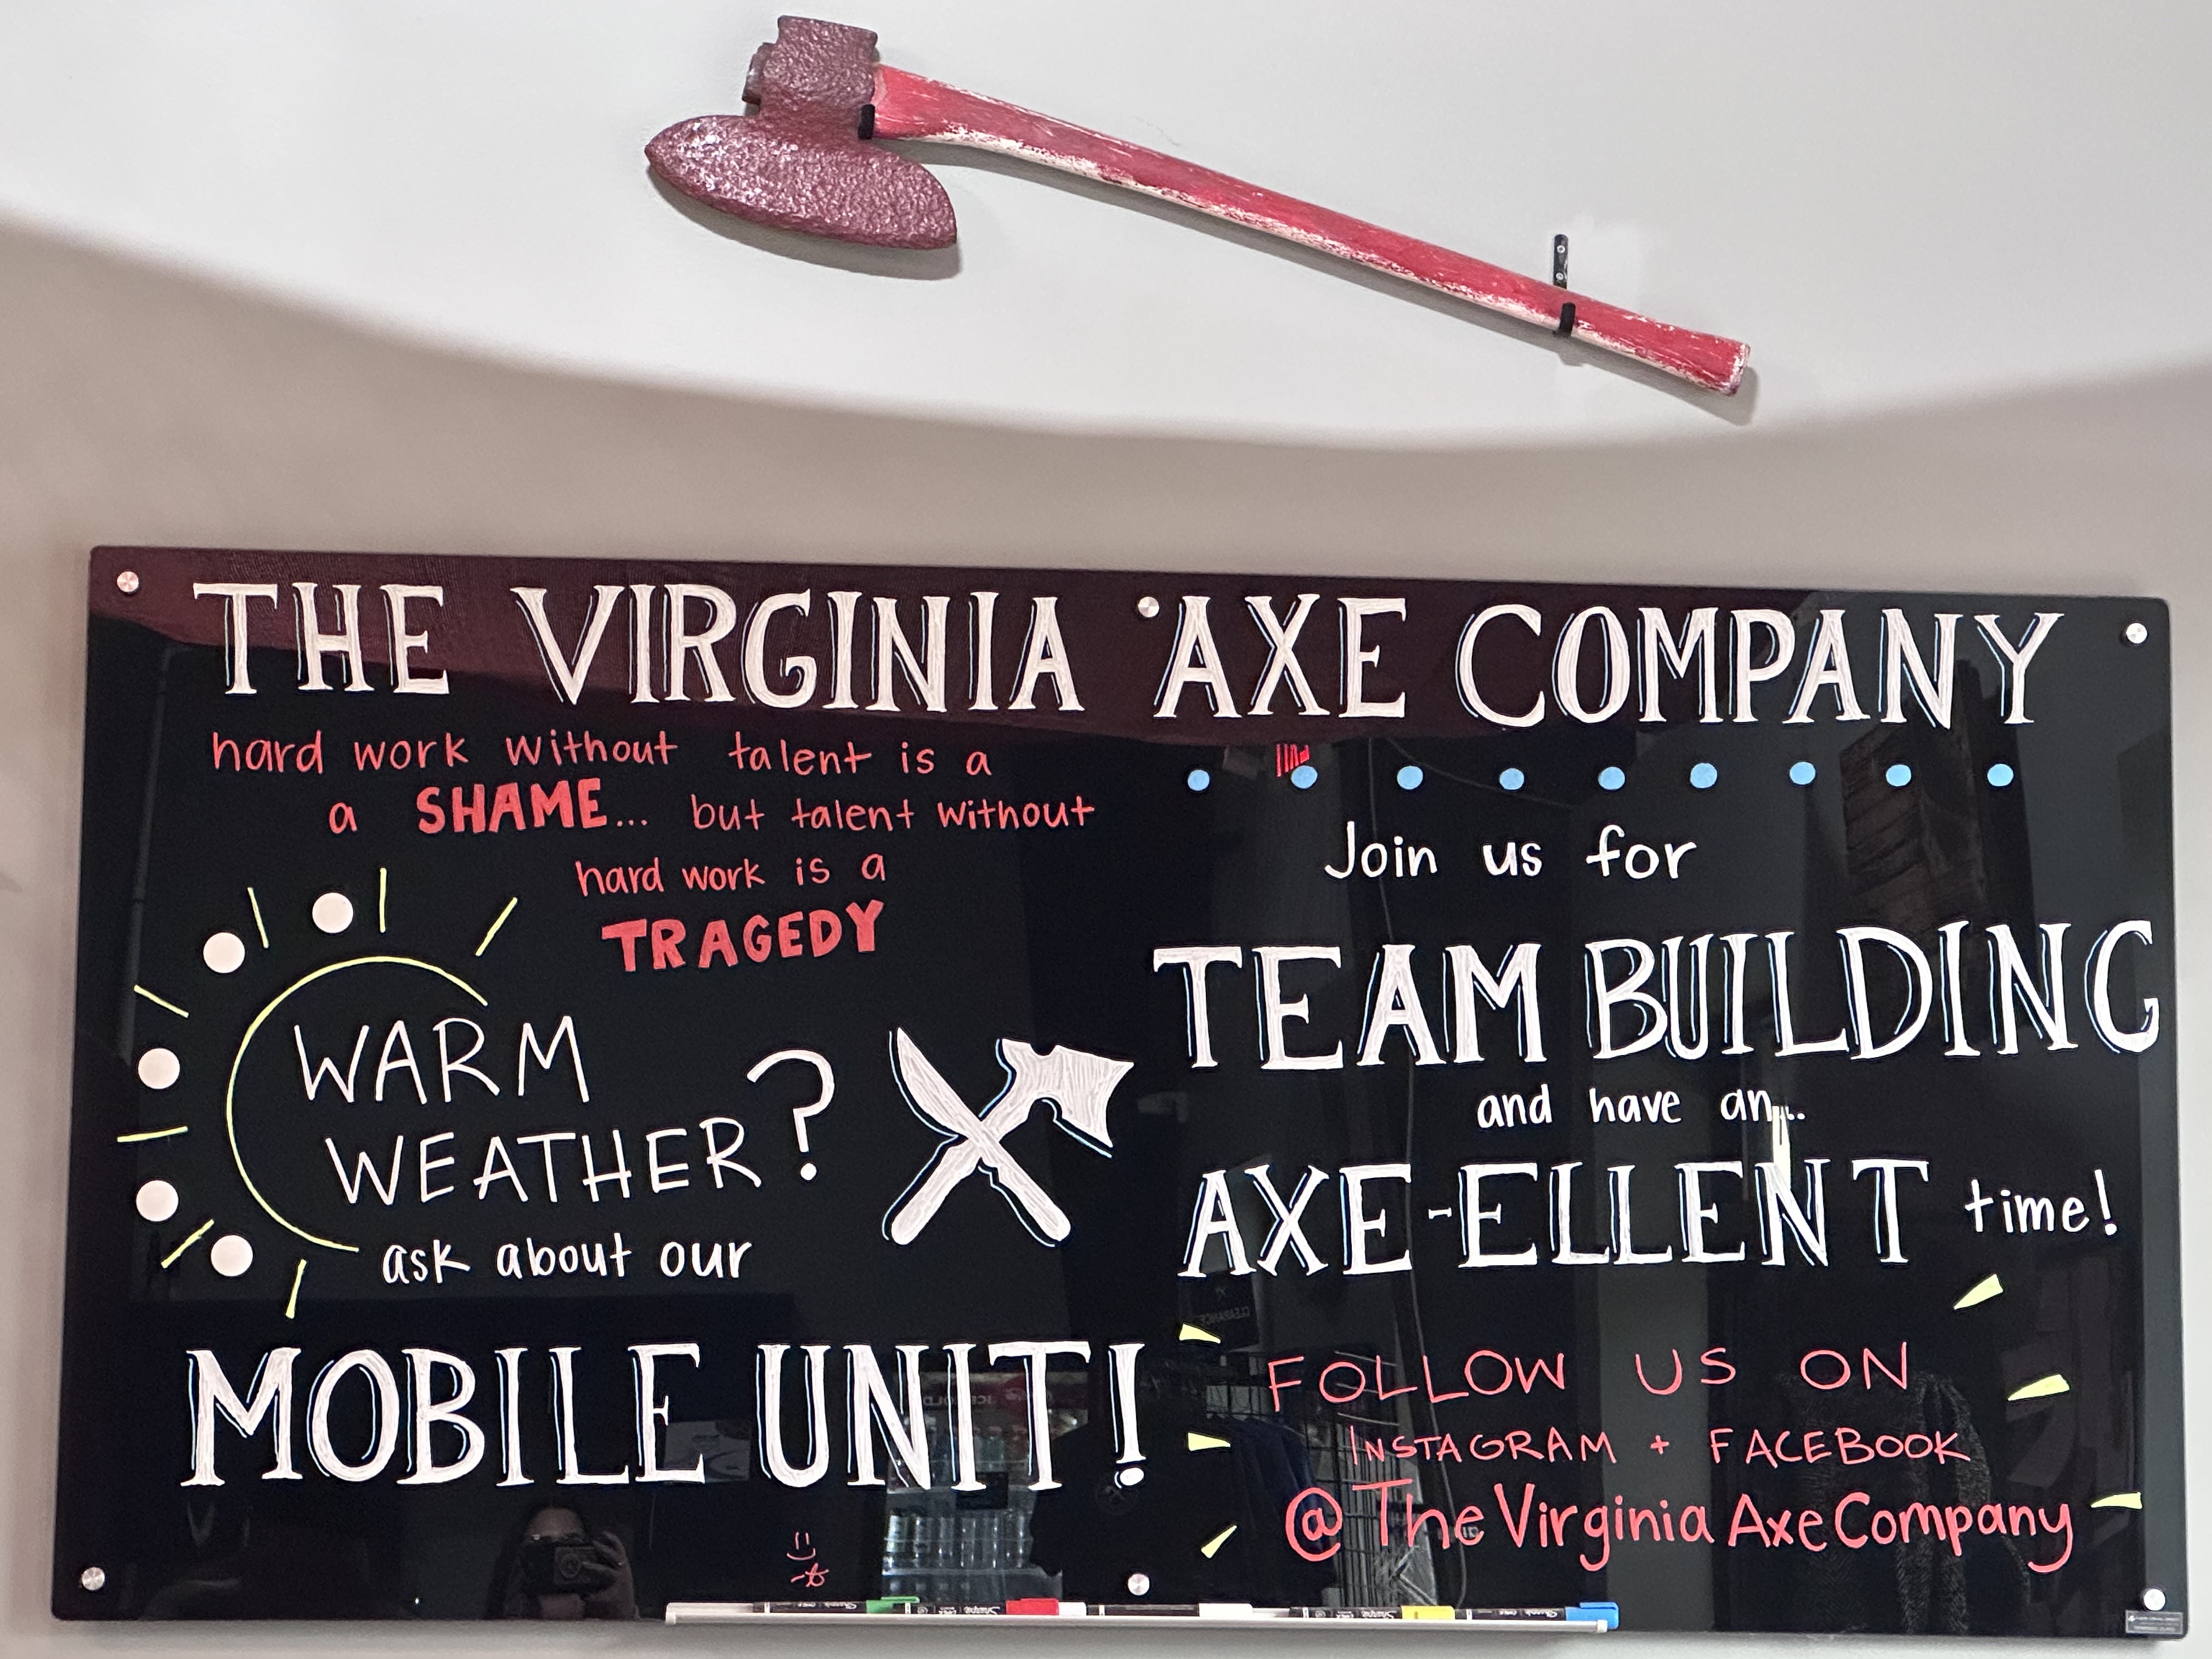 THE VIRGINIA AXE COMPANY
hard work without talent is a
a SHAME... but talent without
hard work is a
TRAGEDY
WARM
WEATHER?
ask about our
MOBILE UNIT!
Join us for
TEAM BUILDING
and have an...
AXE-ELLENT time!
FOLLOW US ON
INSTAGRAM + FACEBOOK
@TheVirginiaAxeCompany